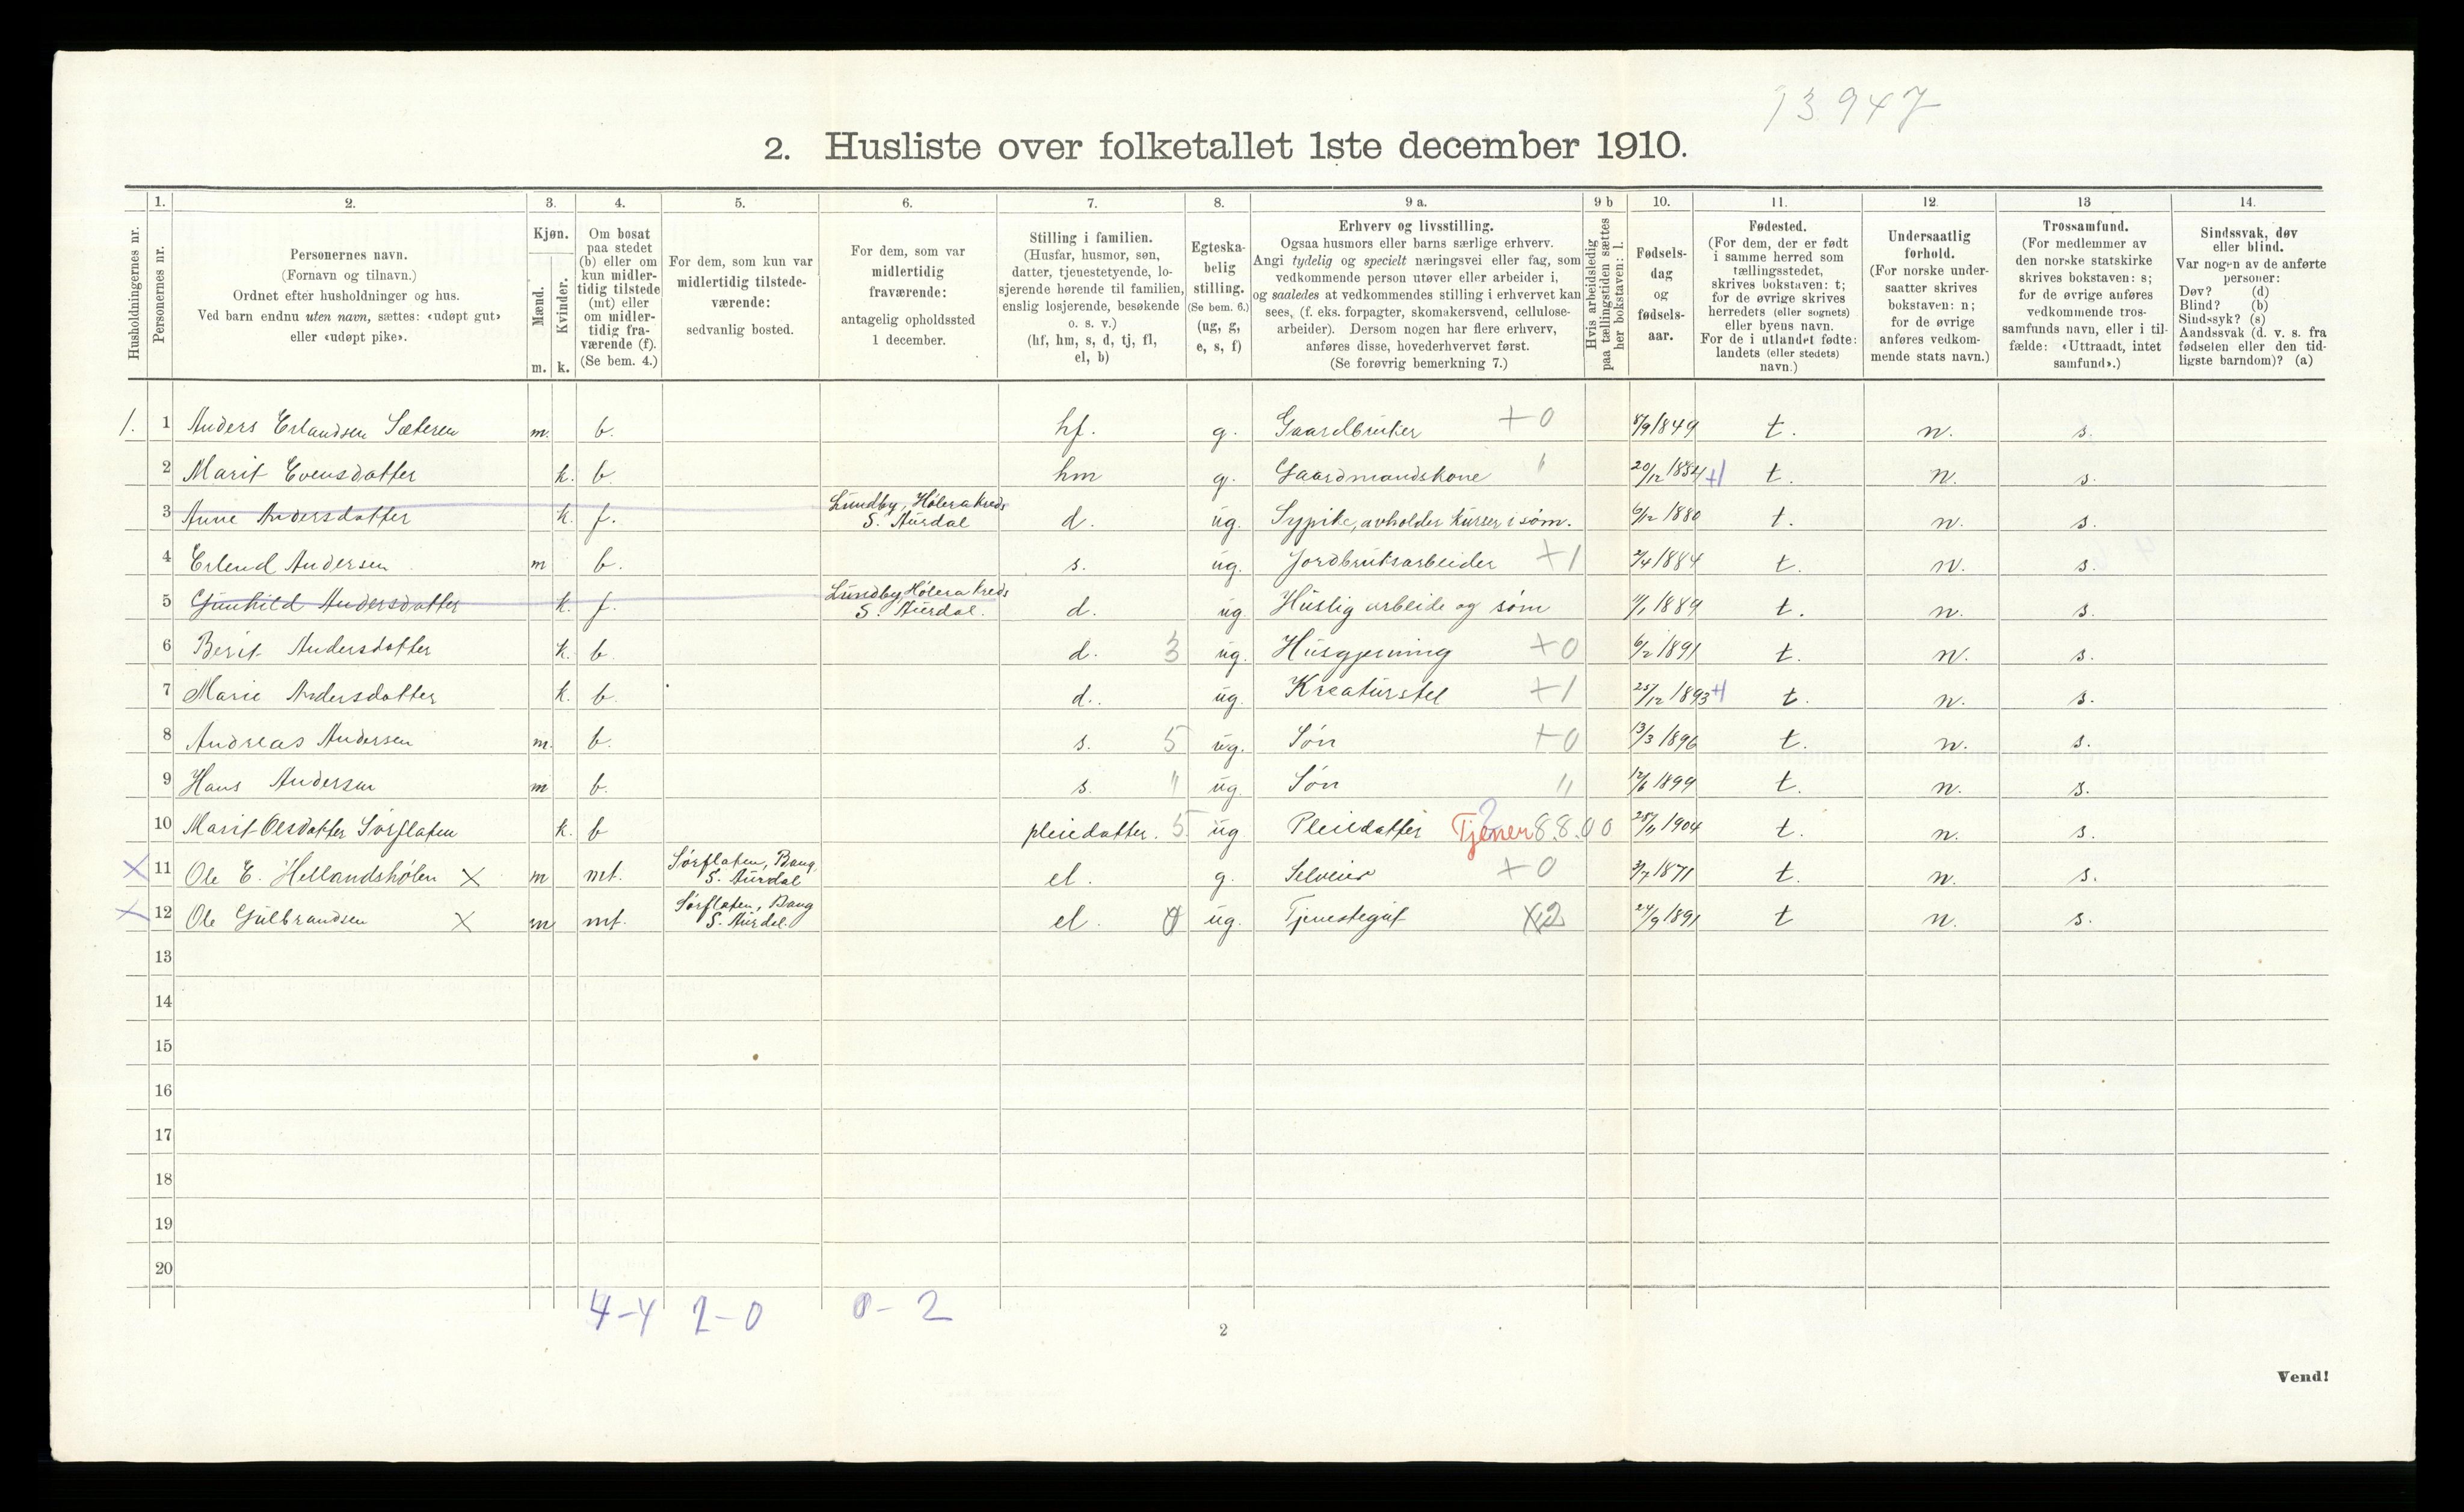 13947
2. Husliste over folketallet 1ste december 1910.
Husholdningernes nr.
1. Personernes nr.
2. Personernes navn.
(Fornavn og tilnavn.)
Ordnet efter husholdninger og hus.
Ved barn endnu uten navn, sættes: «udøpt gut»
eller «udøpt pike».
3. Kjøn.
Mænd. m.
Kvinder. k.
4. Om bosat
paa stedet
(b) eller om
kun midler-
tidig tilstede
(mt) eller
om midler-
tidig fra-
værende (f).
(Se bem. 4.)
5. For dem, som kun var
midlertidig tilstede-
værende:
sedvanlig bosted.
6. For dem, som var
midlertidig
fraværende:
antagelig opholdssted
1 december.
7. Stilling i familien.
(Husfar, husmor, søn,
datter, tjenestetyende, lo-
sjerende hørende til familien,
enslig losjerende, besøkende
o. s. v.)
(hf, hm, s, d, tj, fl,
el, b)
8. Egteska-
belig
stilling.
(Se bem. 6.)
(ug, g,
e, s, f)
9 a. Erhverv og livsstilling.
Ogsaa husmors eller barns særlige erhverv.
Angi tydelig og specielt næringsvei eller fag, som
vedkommende person utøver eller arbeider i,
og saaledes at vedkommendes stilling i erhvervet kan
sees, (f. eks. forpagter, skomakersvend, cellulose-
arbeider). Dersom nogen har flere erhverv,
anføres disse, hovederhvervet først.
(Se forøvrig bemerkning 7.)
9 b Hvis arbeidsledig
paa tællingstiden sættes
her bokstaven: l.
10. Fødsels-
dag
og
fødsels-
aar.
11. Fødested.
(For dem, der er født
i samme herred som
tællingsstedet,
skrives bokstaven: t;
for de øvrige skrives
herredets (eller sognets)
eller byens navn.
For de i utlandet fødte:
landets (eller stedets)
navn.)
12. Undersaatlig
forhold.
(For norske under-
saatter skrives
bokstaven: n;
for de øvrige
anføres vedkom-
mende stats navn.)
13 Trossamfund.
(For medlemmer av
den norske statskirke
skrives bokstaven: s;
for de øvrige anføres
vedkommende tros-
samfunds navn, eller i til-
fælde: «Uttraadt, intet
samfund».)
14. Sindssvak, døv
eller blind.
Var nogen av de anførte
personer:
Døv? (d)
Blind? (b)
Sindssyk? (s)
Aandssvak (d. v. s. fra
fødselen eller den tid-
ligste barndom)? (a)
1. 1 Anders Erlandsen Sæteren m. b. hf. g. Gaardbruker +0 8/9 1849 t. n. s.
2 Marit Evensdatter k. b. hm g. Gaardmandskone " 20/12 1854 +1 t. n. s.
3 Anne Andersdatter k. f. Lundby, Hølera kreds S. Aurdal d. ug. Sypike, avholder kurser i søm. 6/12 1880 t. n. s.
4 Erlend Andersen m b. s. ug. Jordbruksarbeider +1 2/4 1884 t. n. s.
5 Gunhild Andersdatter k. f. Lundby, Hølera kreds S. Aurdal. d. ug. Huslig arbeide og søm 11/1 1889 t. n. s.
6 Berit Andersdatter k. b. d. 3 ug. Husgjerning +0 6/2 1891 t. n. s.
7 Marie Andersdatter k. b. d. ug. Kreaturstel +1 25/12 1893 +1 t. n. s.
8 Andreas Andersen m. b. s. 5 ug. Søn +0 13/3 1896 t. n. s.
9 Hans Andersen m b. s. " ug. Søn " 12/6 1899 t. n. s.
10 Marit Olsdatter Sørflaten k. b pleiedatter. 5 ug Pleiedatter Tjener 8.8.00 1904 t. n. s.
X 11 Ole E. Hellandshølen X m mt. Sørflaten, Bang S. Aurdal el. g. Selveier +0 3/7 1871 t. n. s.
X 12 Ole Gulbrandsen X m mt. Sørflaten, Bang S. Aurdal. el. 0 ug. Tjenestegut X2 24/9 1891 t n. s.
13
14
15
16
17
18
19
20
4-4 2-0 0-2
2
Vend!